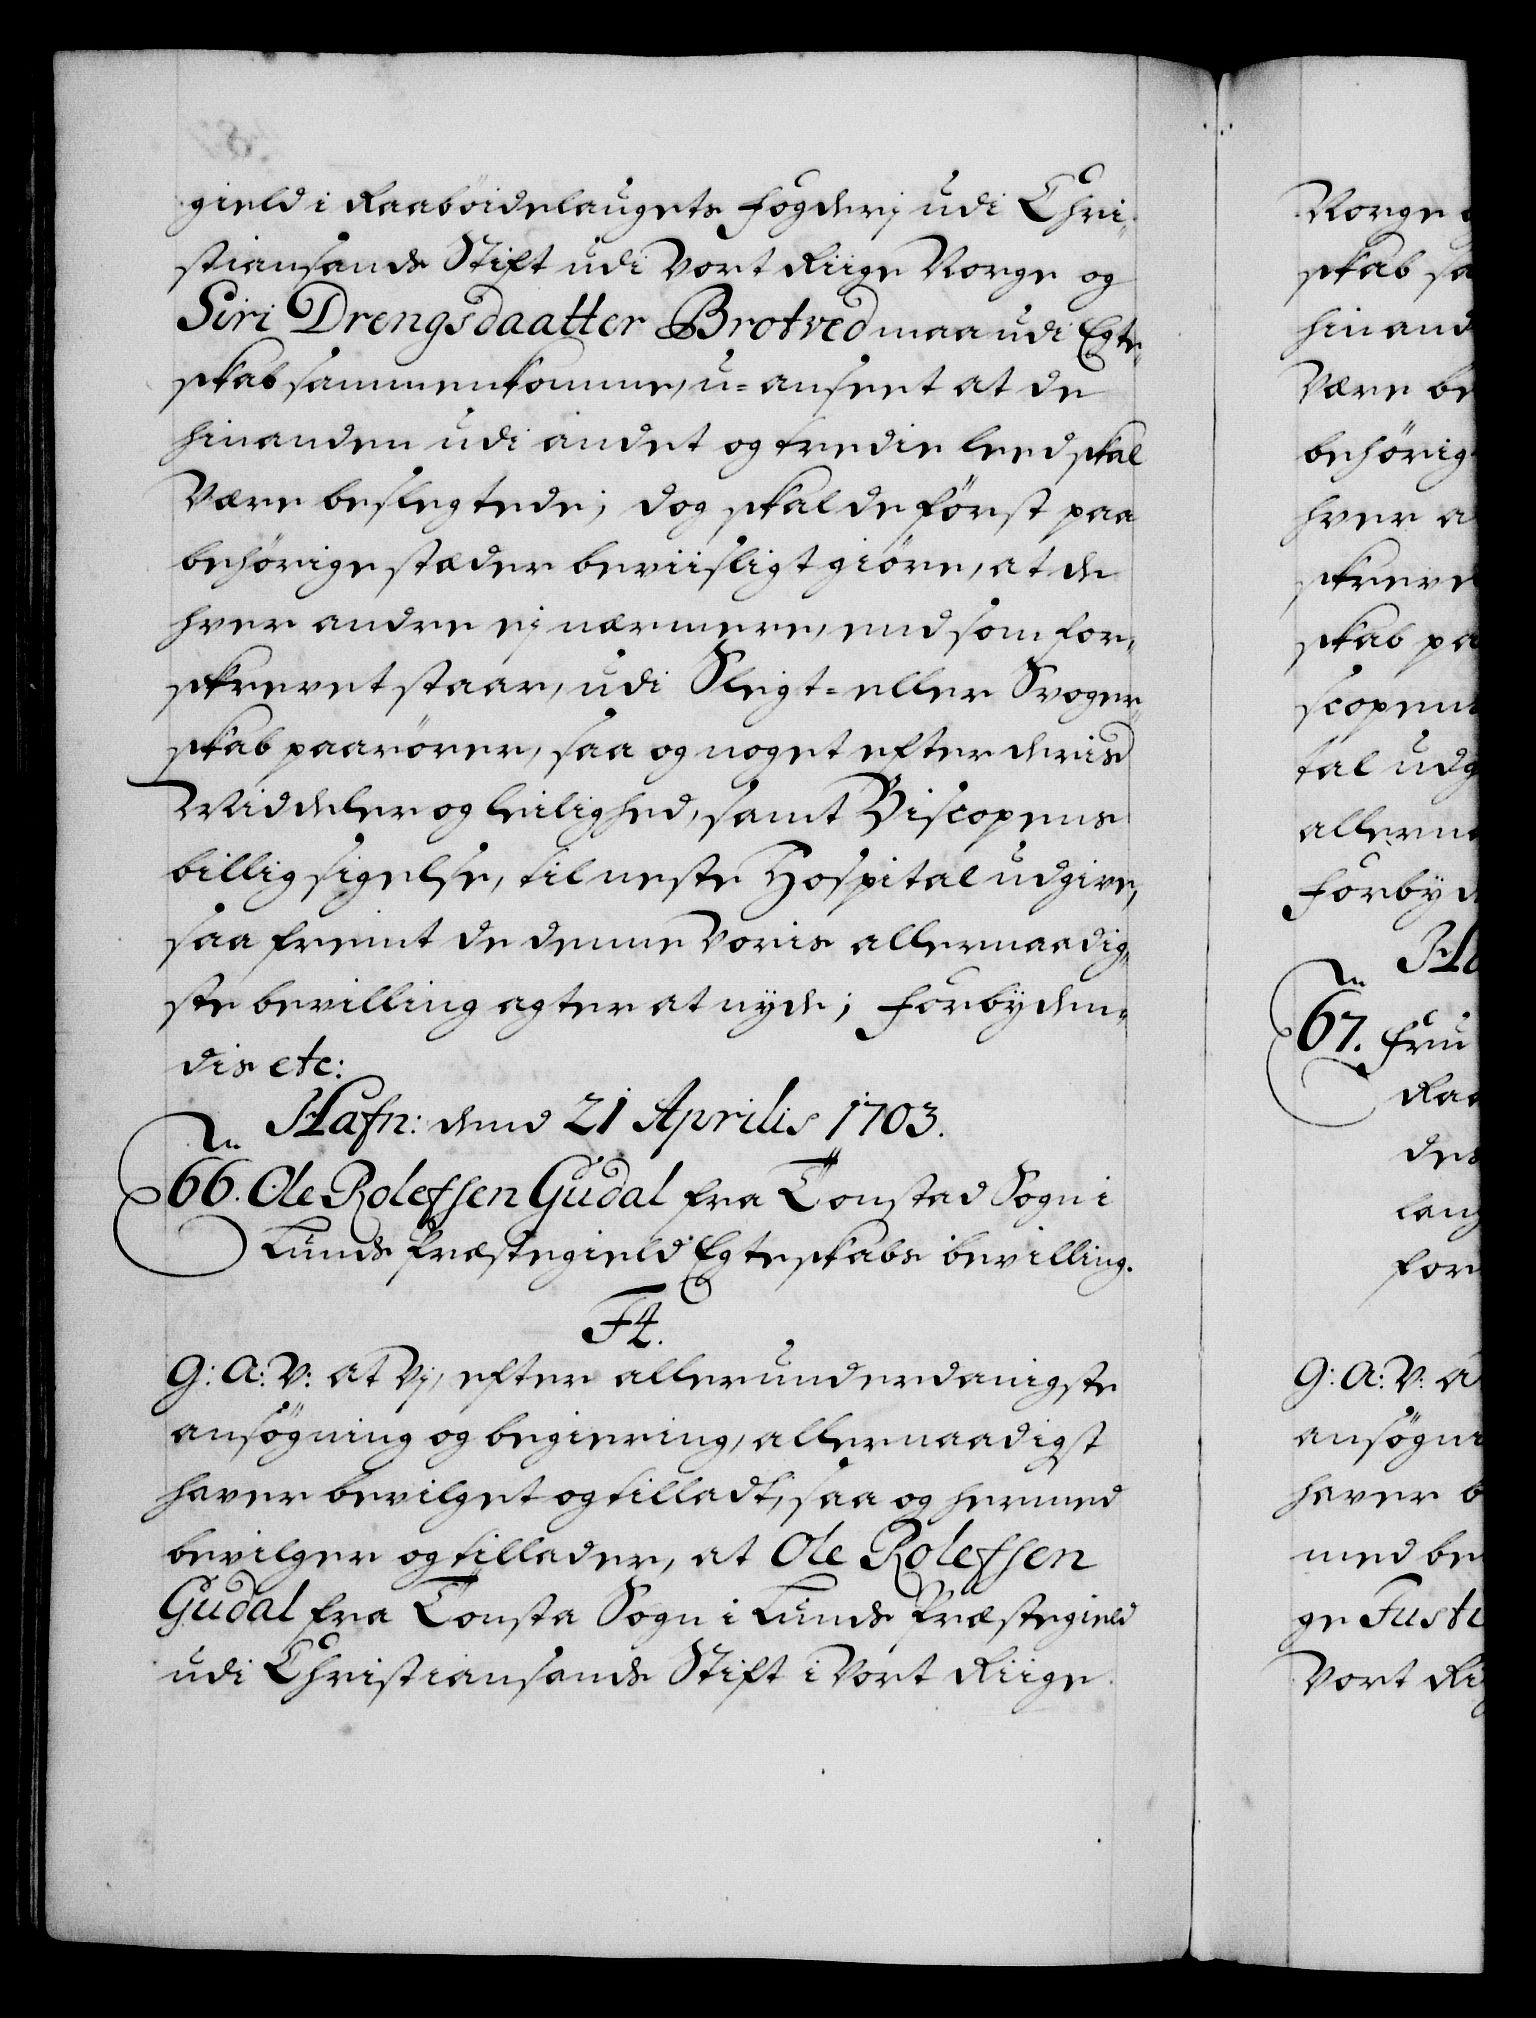 gield i Raaböidelaugets fogderj udi Chri-
stiansands Stift udi Vort Riige Norge og
Siri Drengsdaatter Brotved maa udi Egte-
skab sammenkomme, u-anseet at de
hinanden udi andet og tredie leed skal
Være beslegtede; dog skal de först paa
behörige stæder beviisligt giöre, at de
hver andre ej nærmere, end som for-
skrevet staar, udi Sleigt- eller Svoger-
skab paarörer, saa og noget efter deris
Middeler og leilighed, samt Biscopens
billig sigelse, til neste Hospital udgive,
saa fremt de denne Voris allernaadig-
ste bevilling agter at nyde; Forbyden-
dis etc:
Hafn: dend 21 Aprilis 1703.
66. Ole Rolefsen Gudal fra Tonstad Sogn i
Lunds Præstegield Egteskabs bevilling.
F4.
G: A: V: at Vj, efter allerunderdanigste
ansögning og begiering, allernaadigst
haver bevilget og tilladt, saa og hermed
bevilger og tillader, at Ole Rolefsen
Gudal fra Tonsta Sogn i Lunds Præstegield
udi Christiansands Stift i Vort Riige
Norge
skab
hinand
Være be
behörig
hver a
skreve
skab pa
scopen
tal udg
allerna
Forbyd
67. Fru
Raa
des
lang
for
G: A: V: a
ansögni
haver b
med be
ge Justi
Vort Ri